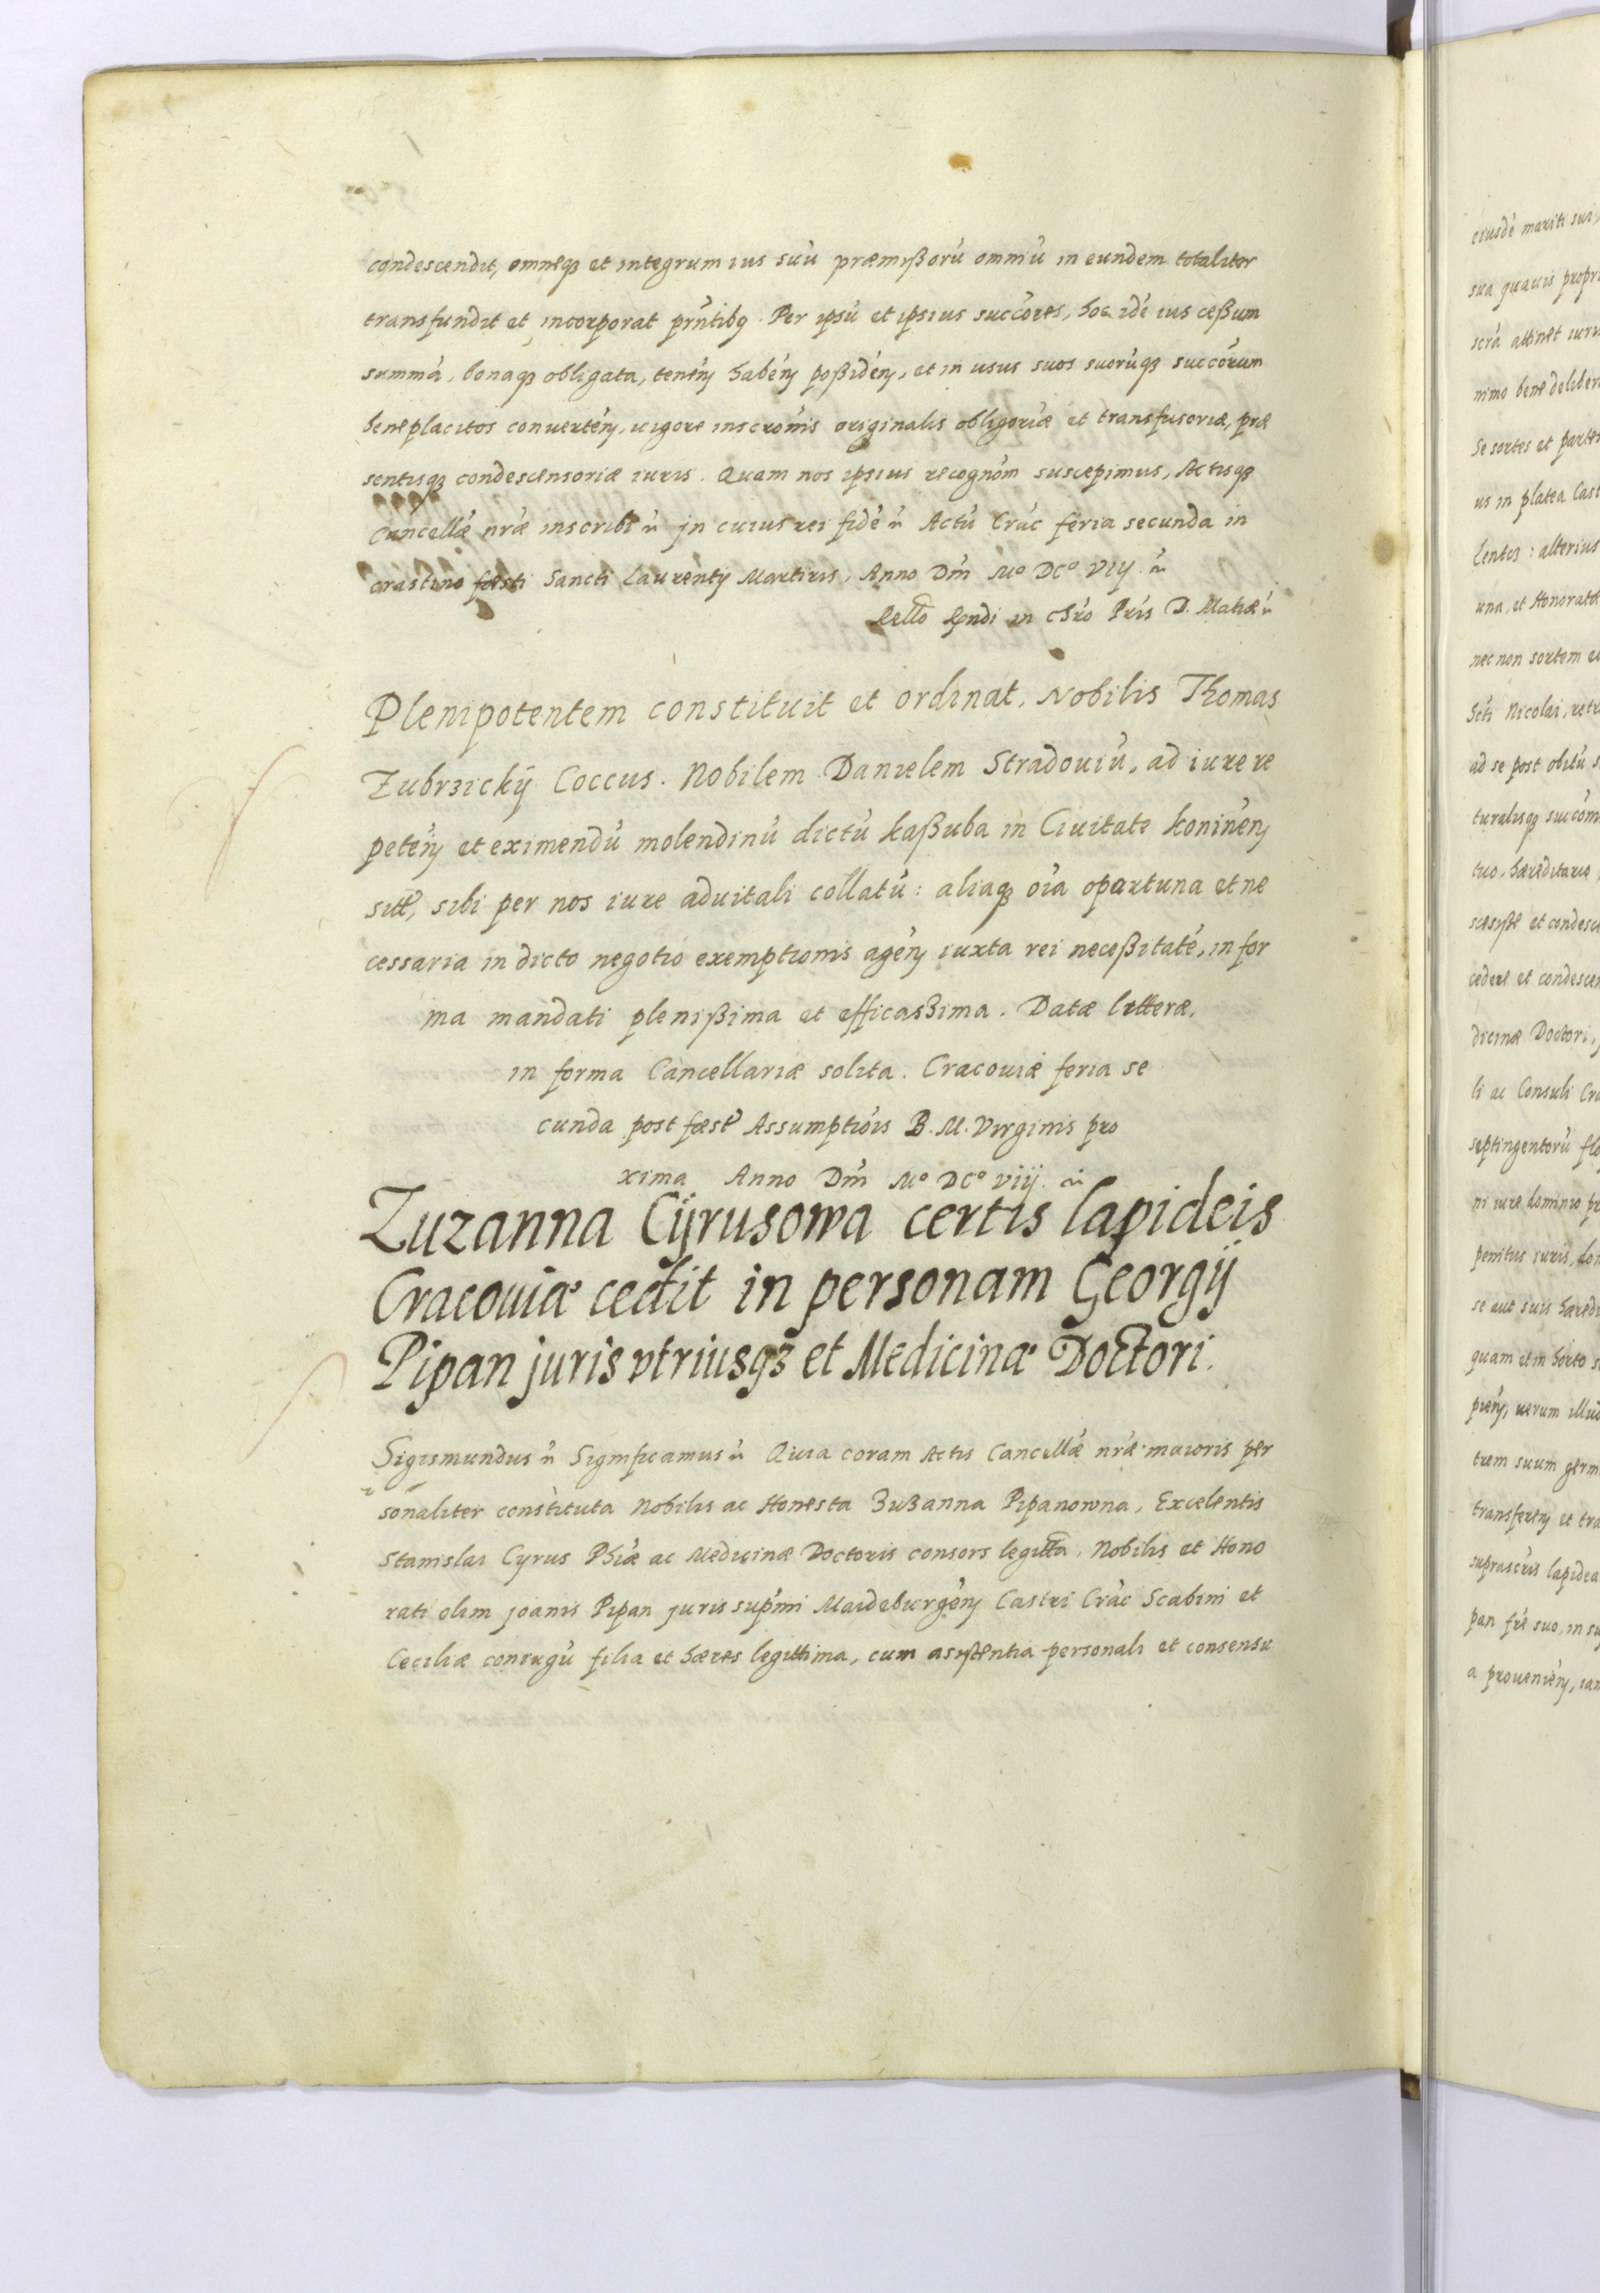 condescendit, omneqз et integrum ius suū præmißorū omniū in eundem totaliter
transfundit et incorporat prn̄tibꝯ. Per ipsū et ipsius succōres, hoc idē ius ceßum
summā, bonaqз obligata, tenēn habēn poßidēn, et in usus suos suorūqз succōrum
beneplacitos convertēn, vigore inscrōnis originalis obligōriæ et transfusoriæ, præ
sentisqз condescensoriæ iuris. Quam nos ipsius recognōm suscepimus, Actisqз
Cancellæ nræ inscribi jn cuius rei fidē Actū Crāc feria secunda in
crastino fæsti Sancti Laurentÿ Martiris, Anno Dm̄ Mº DCº VIIJ
Rello Rndi in Chro Pris D. Mathæ
Plenipotentem constituit et ordinat, Nobilis Thomas
Zubrzickÿ Coccus. Nobilem Danielem Stradoviū, ad iure re
petēn et eximendū molendinū dictū kaßuba in Civitate koninēn
sitt, sibi per nos iure advitali collatū: aliaqз oīa opartuna et ne
cessaria in dicto negotio exemptionis agēn iuxta rei neceßitatē, in for
ma mandati plenißima et efficaßima. Datæ litteræ,
in forma Cancellariæ solita. Cracoviæ feria se
cunda post fæst Assumptiōis B. M. Virginis pro
xima Anno Dm̄ Mº DCº viij
Zuzanna Cÿrusowa certis lapideis
Cracoviæ cedit in personam Georgÿ
Pipan juris vtriusqз et Medicinæ Doctori.
Sigismundus Significamus Quia coram Actis Cancellæ nræ maioris per
sonaliter constituta Nobilis ac Honesta Zußanna Pipanowna, Excelentis
Stanislai Cyrus Phiæ ac Medicinæ Doctoris consors legitta, Nobilis et Hono
rati olim joanis Pipan juris supmi Maideburgēn Castri Crāc Scabini et
Ceciliæ coniugū filia et hæres legittima, cum asistentia personali et consensu
eiusdē mariti sui,
sua quavis propri
scrā attinet iuri
nimo bene deliber
Se sortes et partes
us in platea Cast
lentꝯ: alterius
una, et Honoratæ
nec non sortem
Scti Nicolai, retr
ad se post obitū s
turalisqз succōm
tuo, hæreditario
cedere et condescen
dicinæ Doctori,
li ac Consuli Cra
septingentorū flo
ni iure dominio pr
penitus iuris, dom
se aut suis hæredi
quam et in horto s
piēn, verum illud
trem suum germ
transferēn et tra
suprascris lapidea
pan frē suo, in su
a proveniēn, tan